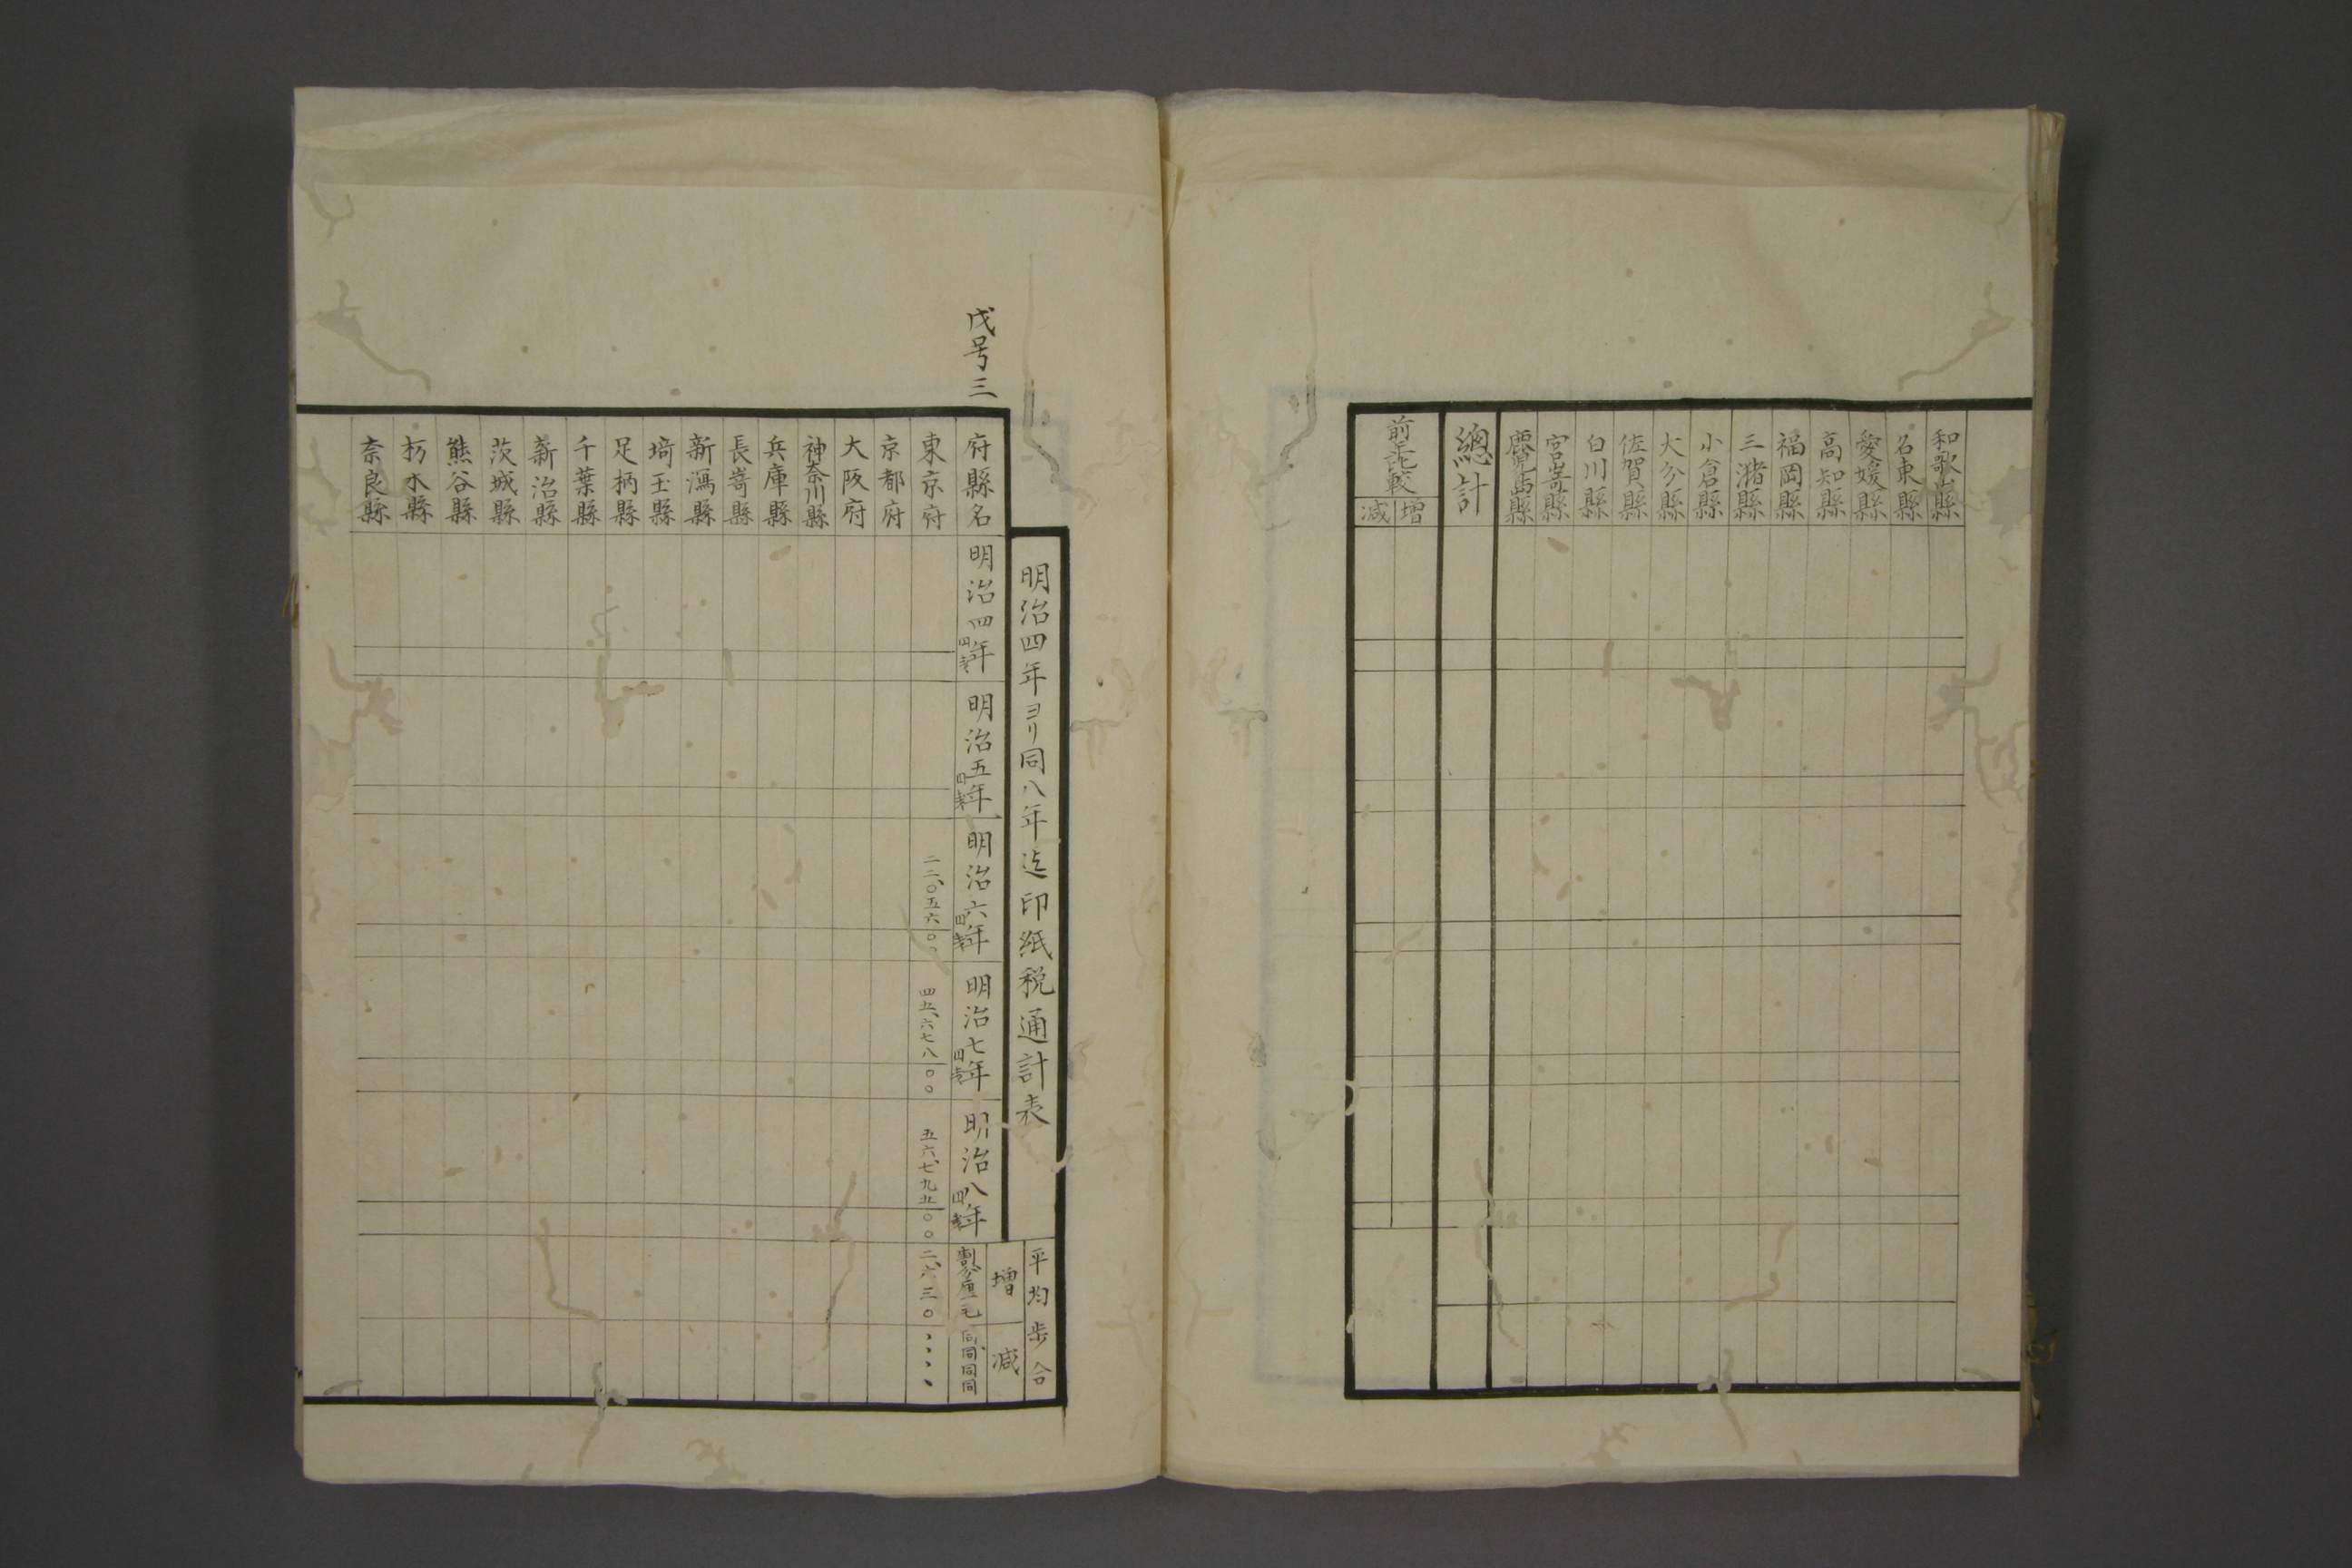 和歌山縣
名東縣
愛媛縣
高知縣
福岡縣
三潴縣
小倉縣
大分縣
佐賀縣
白川縣
宮嵜縣
鹿兒島縣
總計
前年比較
增
減
戊号三
明治四年ヨリ同八年迄印紙税通計表
平均步合
增
減
府縣名
明治四年
明治五年
明治六年
明治七年
明治八年
割分厘毛
同同同同
東京府
二二、〇五六〇、
四五、六七八〇〇
五六、七九五〇〇
二、六三〇
、、、、
京都府
大阪府
神奈川縣
兵庫縣
長嵜縣
新潟縣
埼玉縣
足柄縣
千葉縣
新治縣
茨城縣
熊谷縣
杤木縣
奈良縣